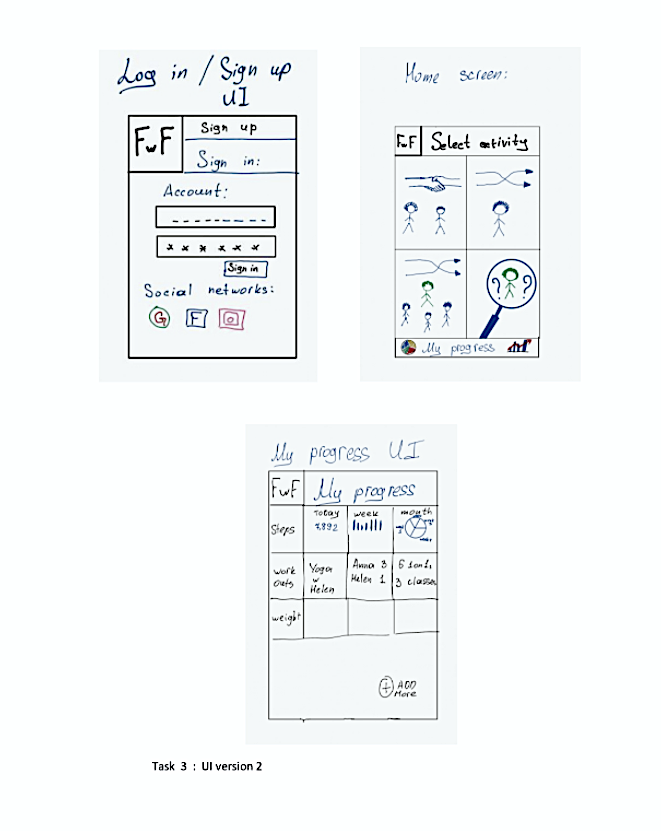 Log in / Sign up
UI
FwF
Sign up
Sign in:
Account:
_ _ _ _ _ _ _ _ _
* * * * * *
Sign in
Social networks:
G F
Home screen:
FwF Select activity
? ?
My progress
My progress UI
FwF My progress
Steps
Today
7,892
week
month
work
outs
Yoga
w
Helen
Anna 3
Helen 1
6 1on1,
3 classes
weight
+ ADD
More
Task 3 : UI version 2